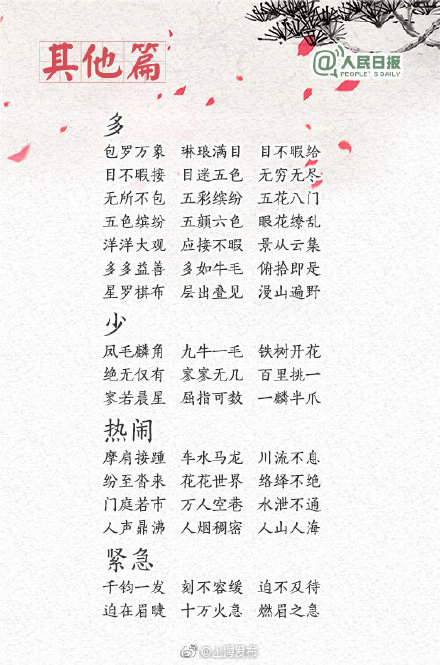 其他篇
@人民日报
PEOPLE'S DAILY
多
包罗万象 琳琅满目 目不暇给
目不暇接 目迷五色 无穷无尽
无所不包 五彩缤纷 五花八门
五色缤纷 五颜六色 眼花缭乱
洋洋大观 应接不暇 景从云集
多多益善 多如牛毛 俯拾即是
星罗棋布 层出叠见 漫山遍野
少
凤毛麟角 九牛一毛 铁树开花
绝无仅有 寥寥无几 百里挑一
寥若晨星 屈指可数 一麟半爪
热闹
摩肩接踵 车水马龙 川流不息
纷至沓来 花花世界 络绎不绝
门庭若市 万人空巷 水泄不通
人声鼎沸 人烟稠密 人山人海
紧急
千钧一发 刻不容缓 迫不及待
迫在眉睫 十万火急 燃眉之急
@上海发布